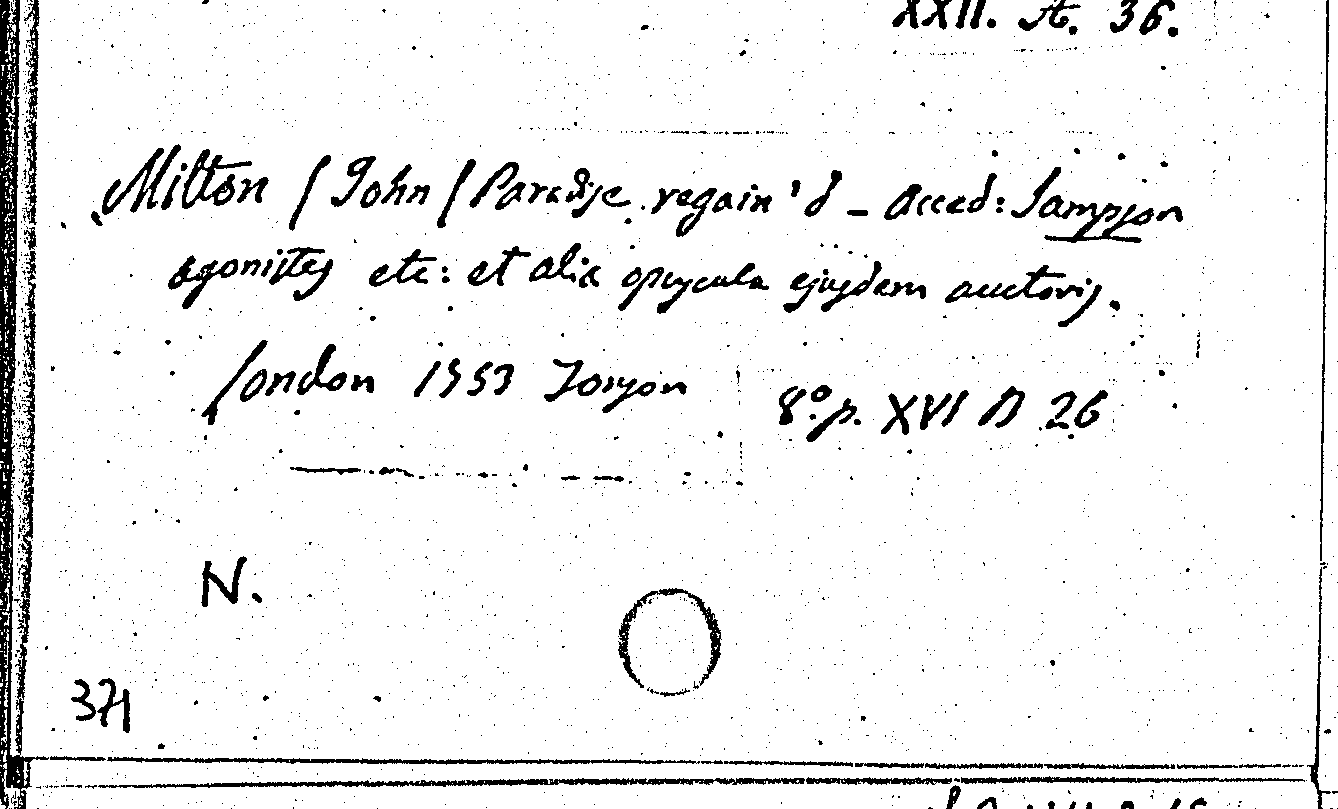 XXII. A. 36.
Milton /John/ Paradise regain'd - acced: Sampson
agonistes etc: et alia opuscula ejusdem auctoris.
London 1753 Tonson 8º. p. XVI D 26
N.
371